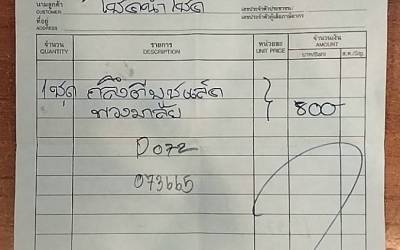 นามลูกค้า
CUSTOMER
ที่อยู่
ADDRESS
เลขประจำตัวประชาชน
เลขประจำตัวผู้เสียภาษีอากร
จำนวน รายการ หน่วยละ จำนวนเงิน
QUANTITY DESCRIPTION UNIT PRICE AMOUNT
บาท/Baht ส.ต./Stg.
1ชุด กลึงตีบุชเล็ด
พวงมาลัย 800
D072
073665